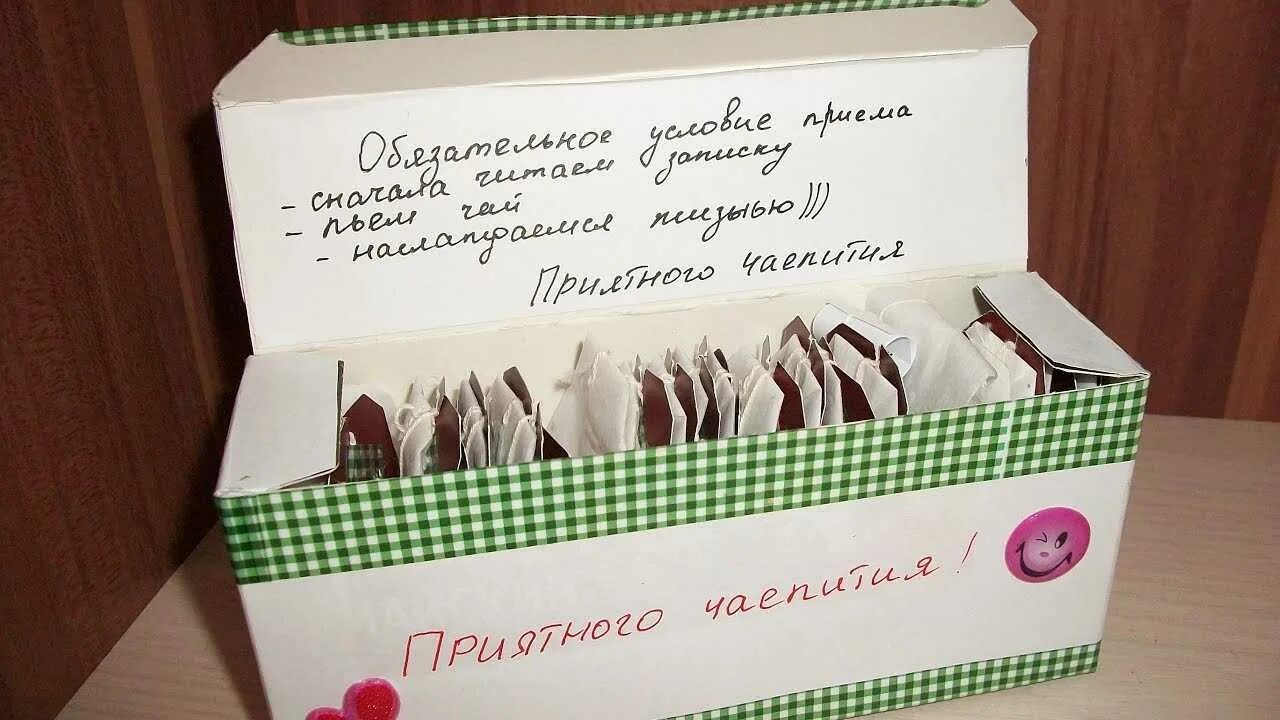 Обязательное условие приема
- сначала читаем записку
- пьем чай
- наслаждаемся жизнью)))
Приятного чаепития
Приятного чаепития!